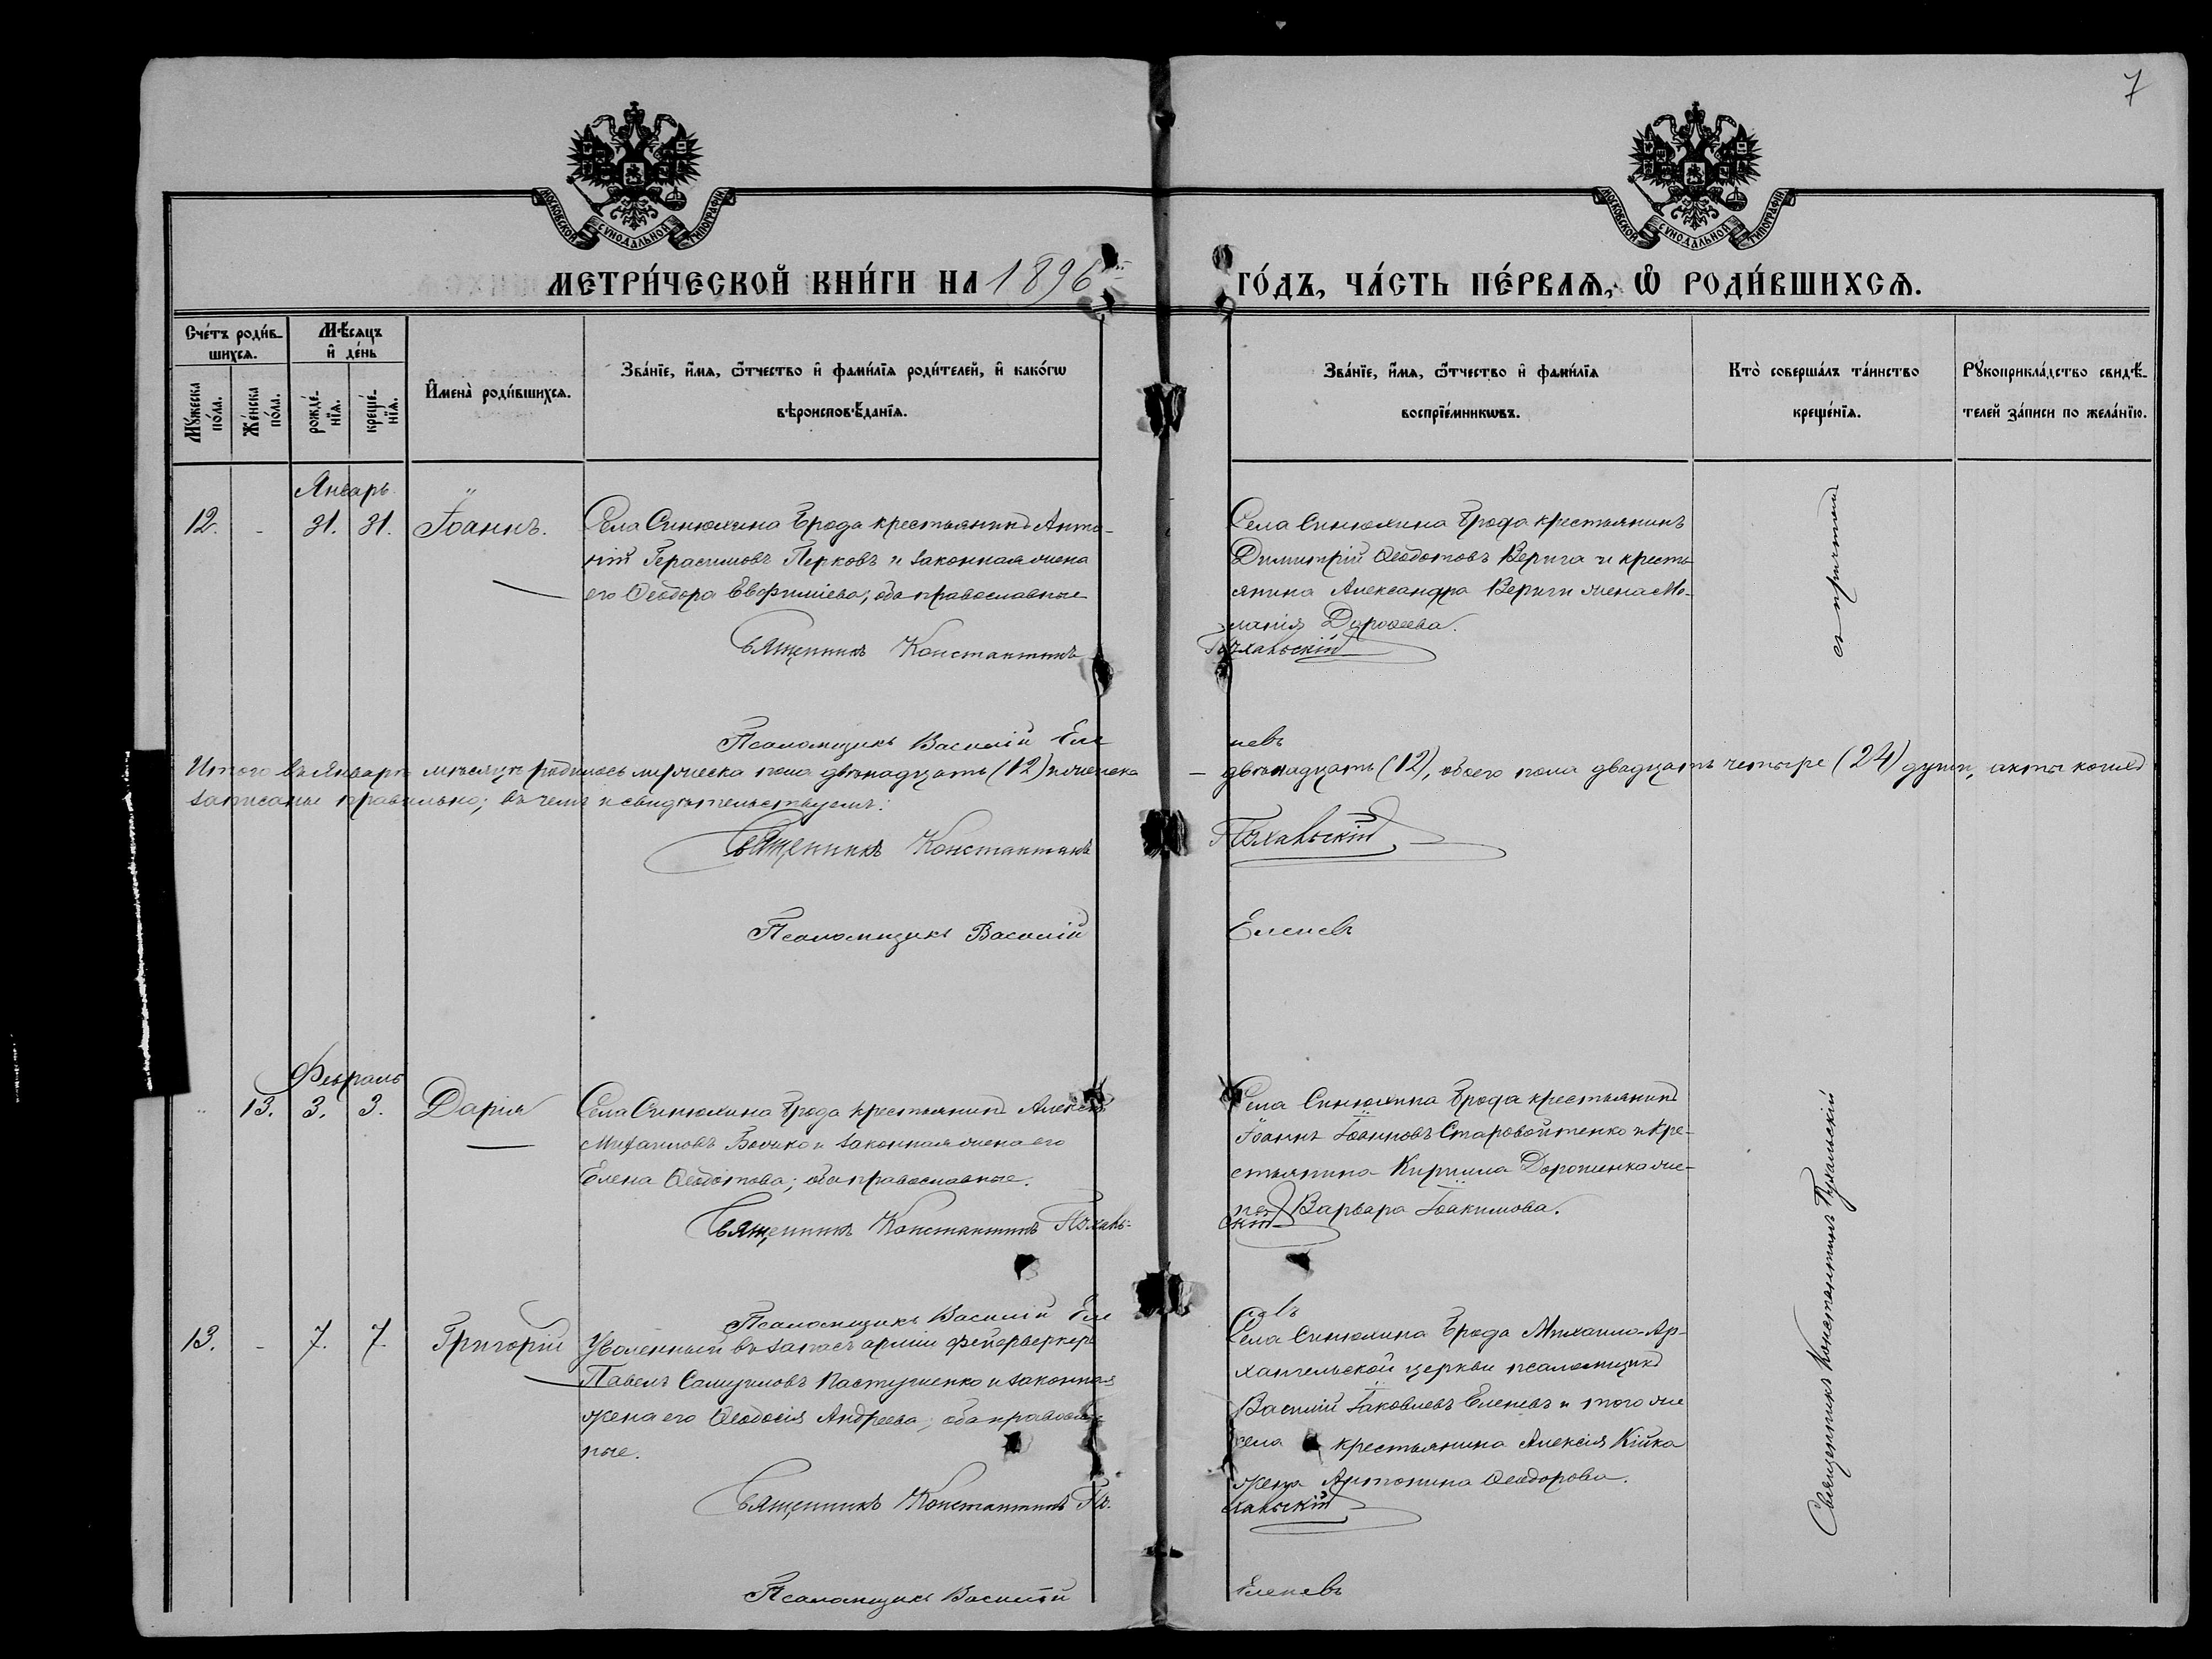 7
МОСКОВСКОЙ СѴНОДАЛЬНОЙ ТИПОГРАФІИ
МОСКОВСКОЙ СѴНОДАЛЬНОЙ ТИПОГРАФІИ
МЕТРИ́ЧЕСКОЙ КНИ́ГИ НА 1896
ГО́ДЪ, ЧА́СТЬ ПЕ́РВАѦ, Ѽ РОДИ́ВШИХСѦ.
Сче́тъ роди́в-
шихсѧ.
Мꙋ́жеска по́ла.
Же́нска по́ла.
Мѣ́сѧцъ
и҆ де́нь
рожде́-
нїѧ.
креще́-
нїѧ.
И҆мена̀ роди́вшихсѧ.
Зва́нїе, и҆́мѧ, ѻ҆́тчество и҆ фами́лїѧ роди́телей, и҆ како́гѡ
вѣроисповѣ́данїѧ.
Зва́нїе, и҆́мѧ, ѻ҆́тчество и҆ фами́лїѧ
воспрїе́мникѡвъ.
Кто̀ соверша́лъ та́инство
креще́нїѧ.
Рꙋкоприкла́дство свидѣ́-
телей за́писи по жела́нїю.
Январь
12. - 31. 31. Іоаннъ.
Села Синюхина Брода крестьянинъ Анто-
ній Герасимовъ Перковъ и законная жена
его Ѳеодора Евфиміева, оба православные
Священникъ Константинъ
Псаломщикъ Василій Еле
Села Синюхина Брода крестьянинъ
Димитрій Ѳеодотовъ Верига и кресть-
янина Александра Вериги жена Ме-
ланія Дороѳеева.
Пухальскій
невъ
съ причтомъ
Итого въ Январѣ мѣсяцѣ родилось мужеска пола двѣнадцать (12) и женска - двѣнадцать (12), обоего пола двадцать четыре (24) души, акты коихъ
записаны правильно; въ чемъ и свидѣтельствуемъ:
Священникъ Константинъ Пухальскій
Псаломщикъ Василій Еленевъ
Февраль
13. 3. 3. Дарія
Села Синюхина Брода крестьянинъ Алексѣй
Михаиловъ Бойко и законная жена его
Елена Ѳеодотова; оба православные.
Священникъ Константинъ Пухаль-
Псаломщикъ Василій Еле
Села Синюхина Брода крестьянинъ
Іоаннъ Іоанновъ Старовойтенко и кре-
стьянина Кирилла Дорошенка же-
на Варвара Іоакимова.
скій
невъ
13. - 7. 7. Григорій
Уволенный въ запасъ арміи фейерверкеръ
Павелъ Самуиловъ Пастушенко и законная
жена его Ѳеодосія Андреева; оба православ-
ные.
Священникъ Константинъ Пу-
Псаломщикъ Василій
Села Синюхина Брода Михаило-Ар-
хангельской церкви псаломщикъ
Василій Іаковлевъ Еленевъ и того же
села крестьянина Алексія Кійка
жена Антонина Ѳеодорова.
хальскій
Еленевъ
Священникъ Константинъ Пухальскій